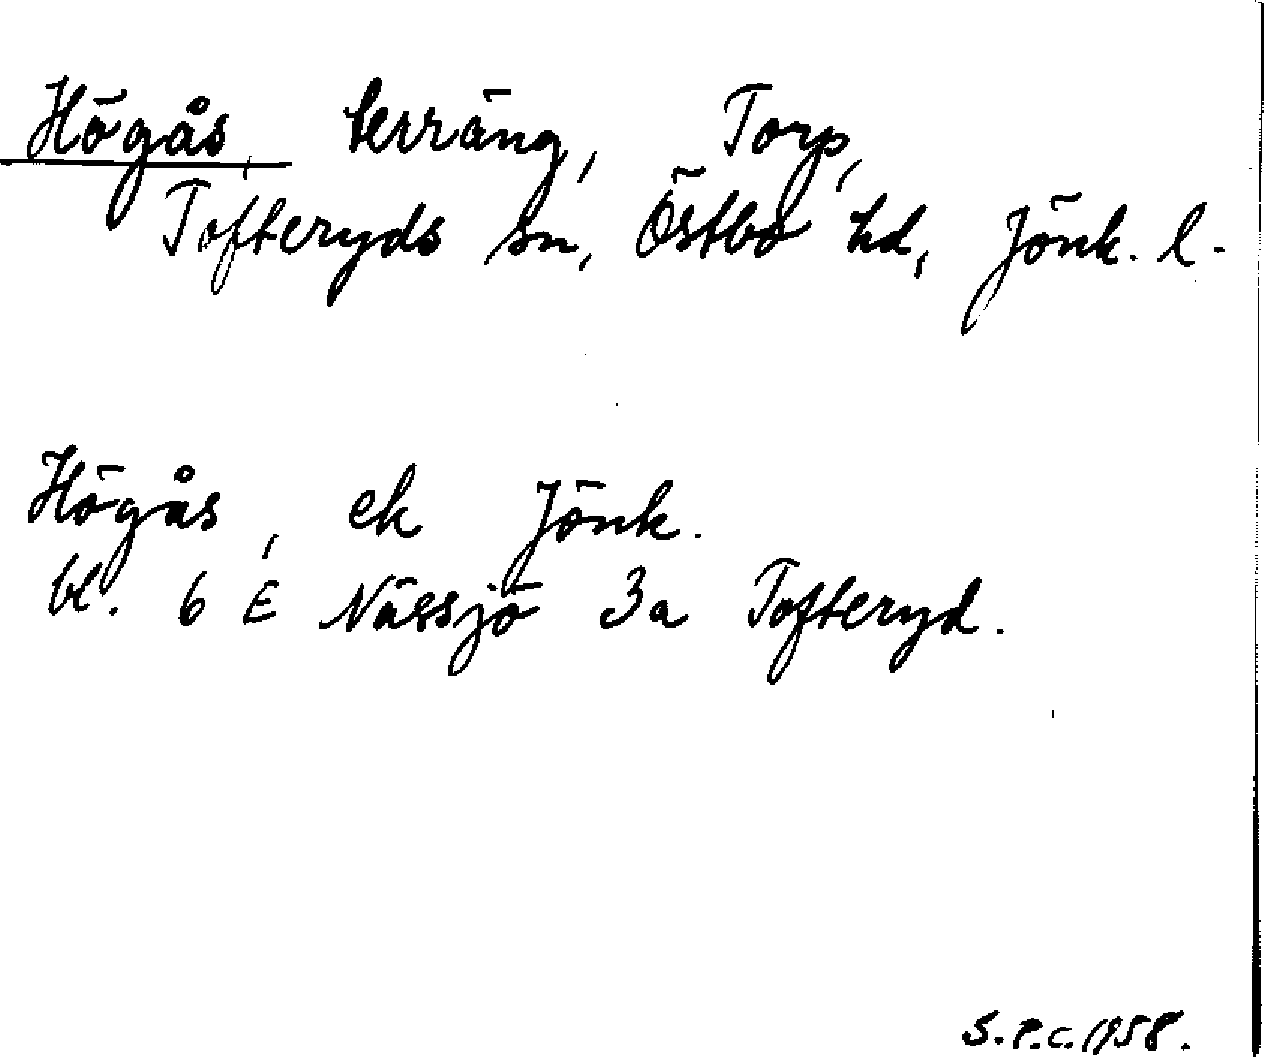 Högås, terräng, Torp,
Tofteryds sn, Östbo hd, Jönk. l.
Högås, ek Jönk.
bl. 6 E Nässjö 3a Tofteryd.
S.P.C. 1958.